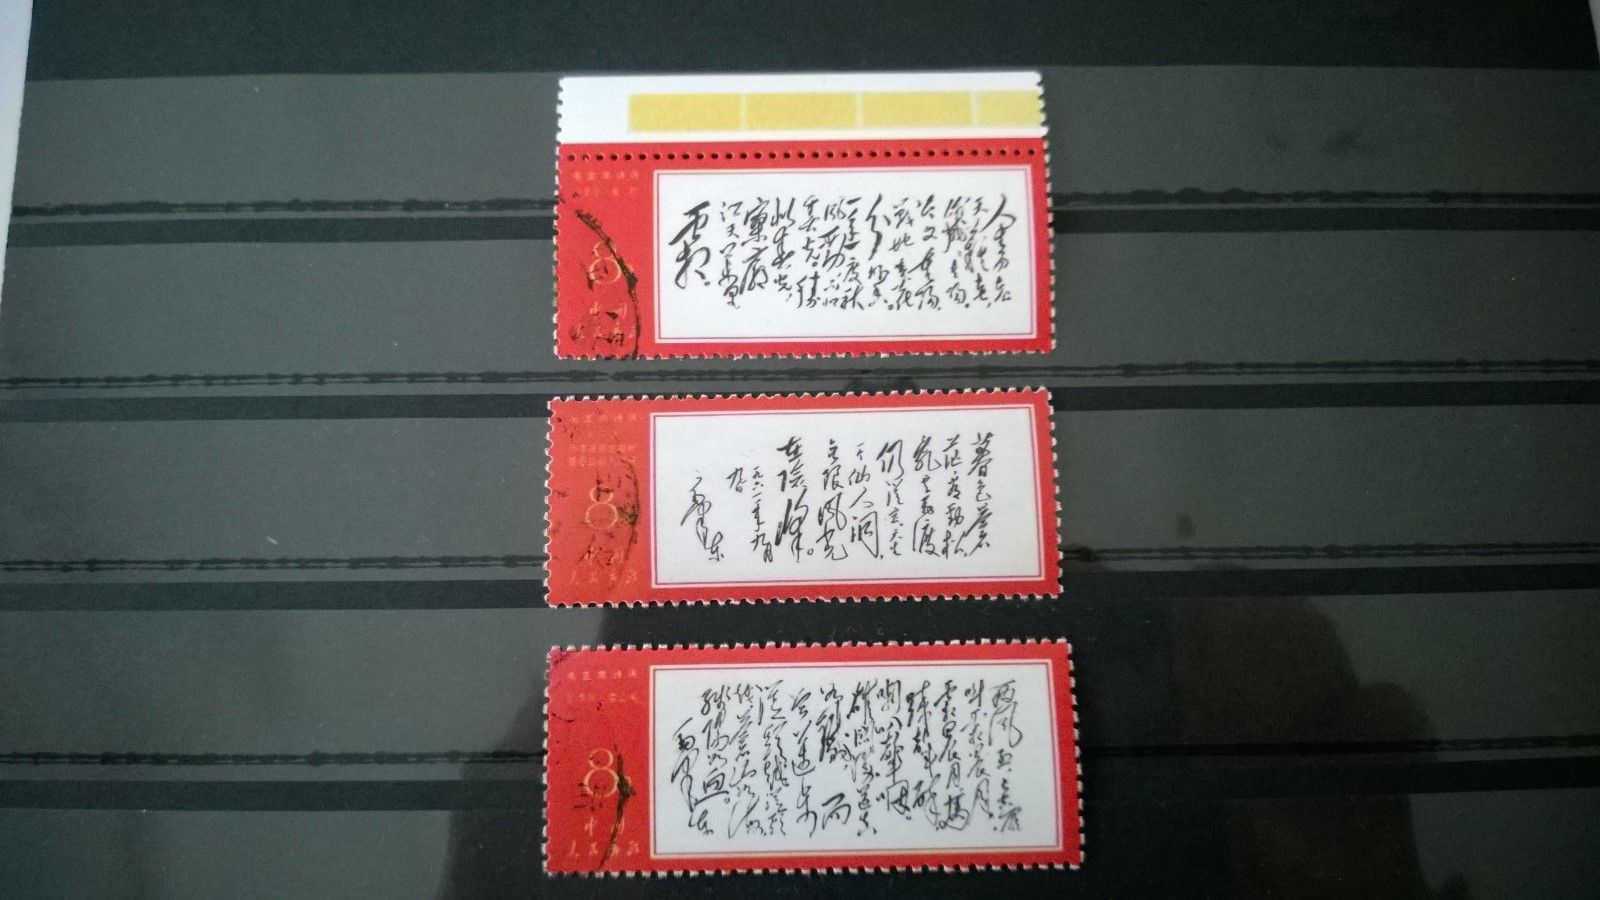 毛主席诗词
8
人生易老
天难老,
岁岁重阳。
今又重阳,
战地黄花
分外香。
一年一度秋
风劲,不似
春光。胜
似春光,
寥廓
江天万里
霜。
毛主席诗词
8
中国
人民邮政
暮色苍茫
看劲松,
乱云飞渡
仍从容。天生
一个仙人洞,
无限风光
在险峰。
一九六一年九月
九日
毛泽东
毛主席诗词
8
中国
人民邮政
西风烈,长空雁
叫霜晨月。
霜晨月,马
蹄声碎,
喇叭声咽。
雄关漫道真
如铁,而
今迈步
从头越。从头
越,苍山如海,
残阳如血。
毛泽东